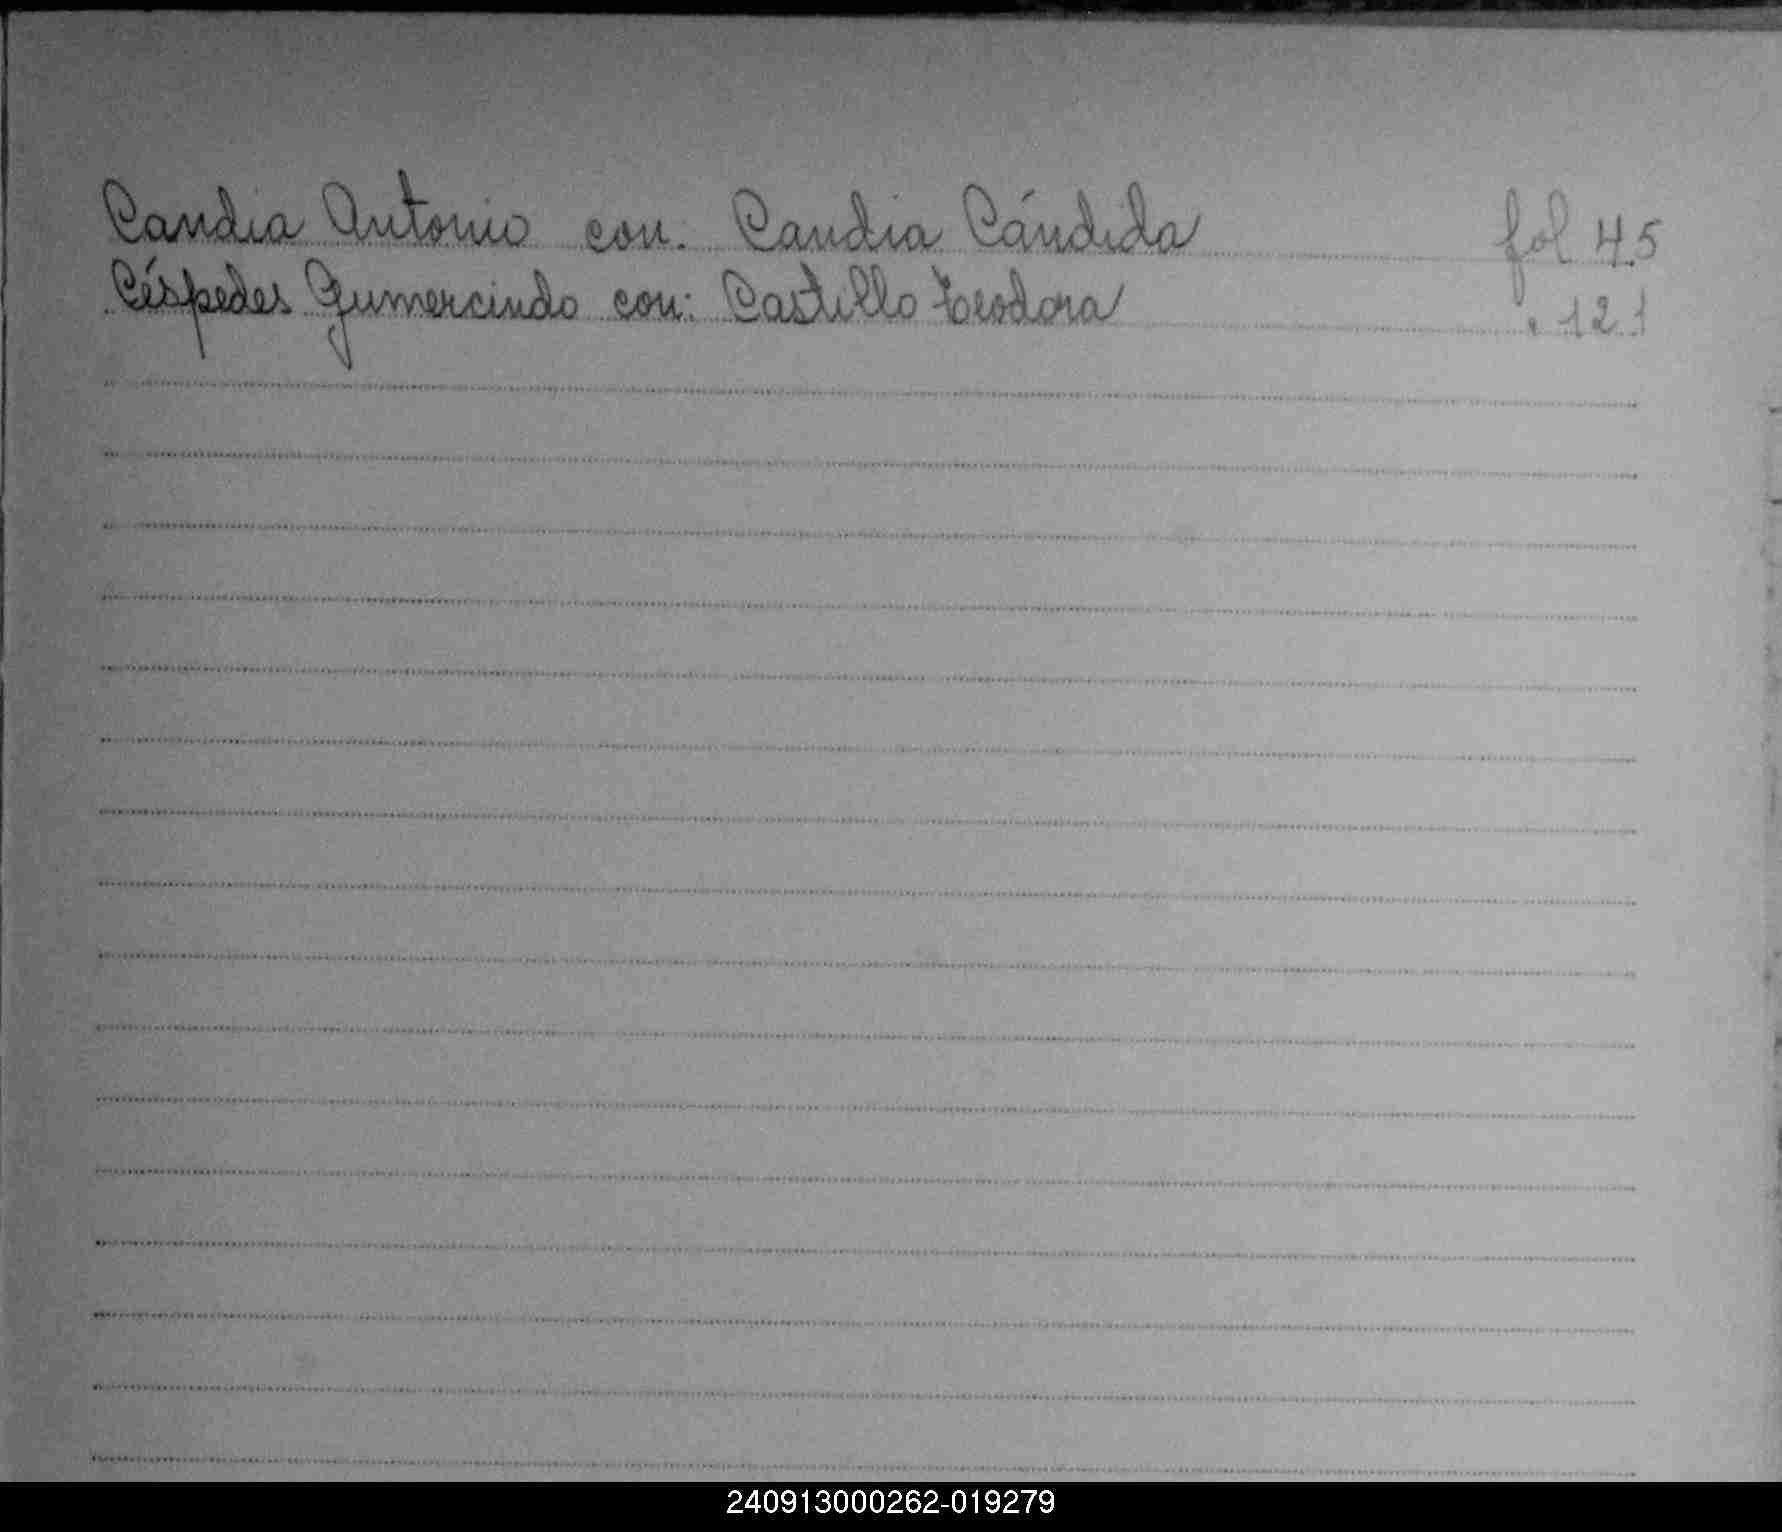 Candia Antonio con: Candia Cándida fol 45
Céspedes Gumercindo con: Castillo Teodora " 121
240913000262-019279